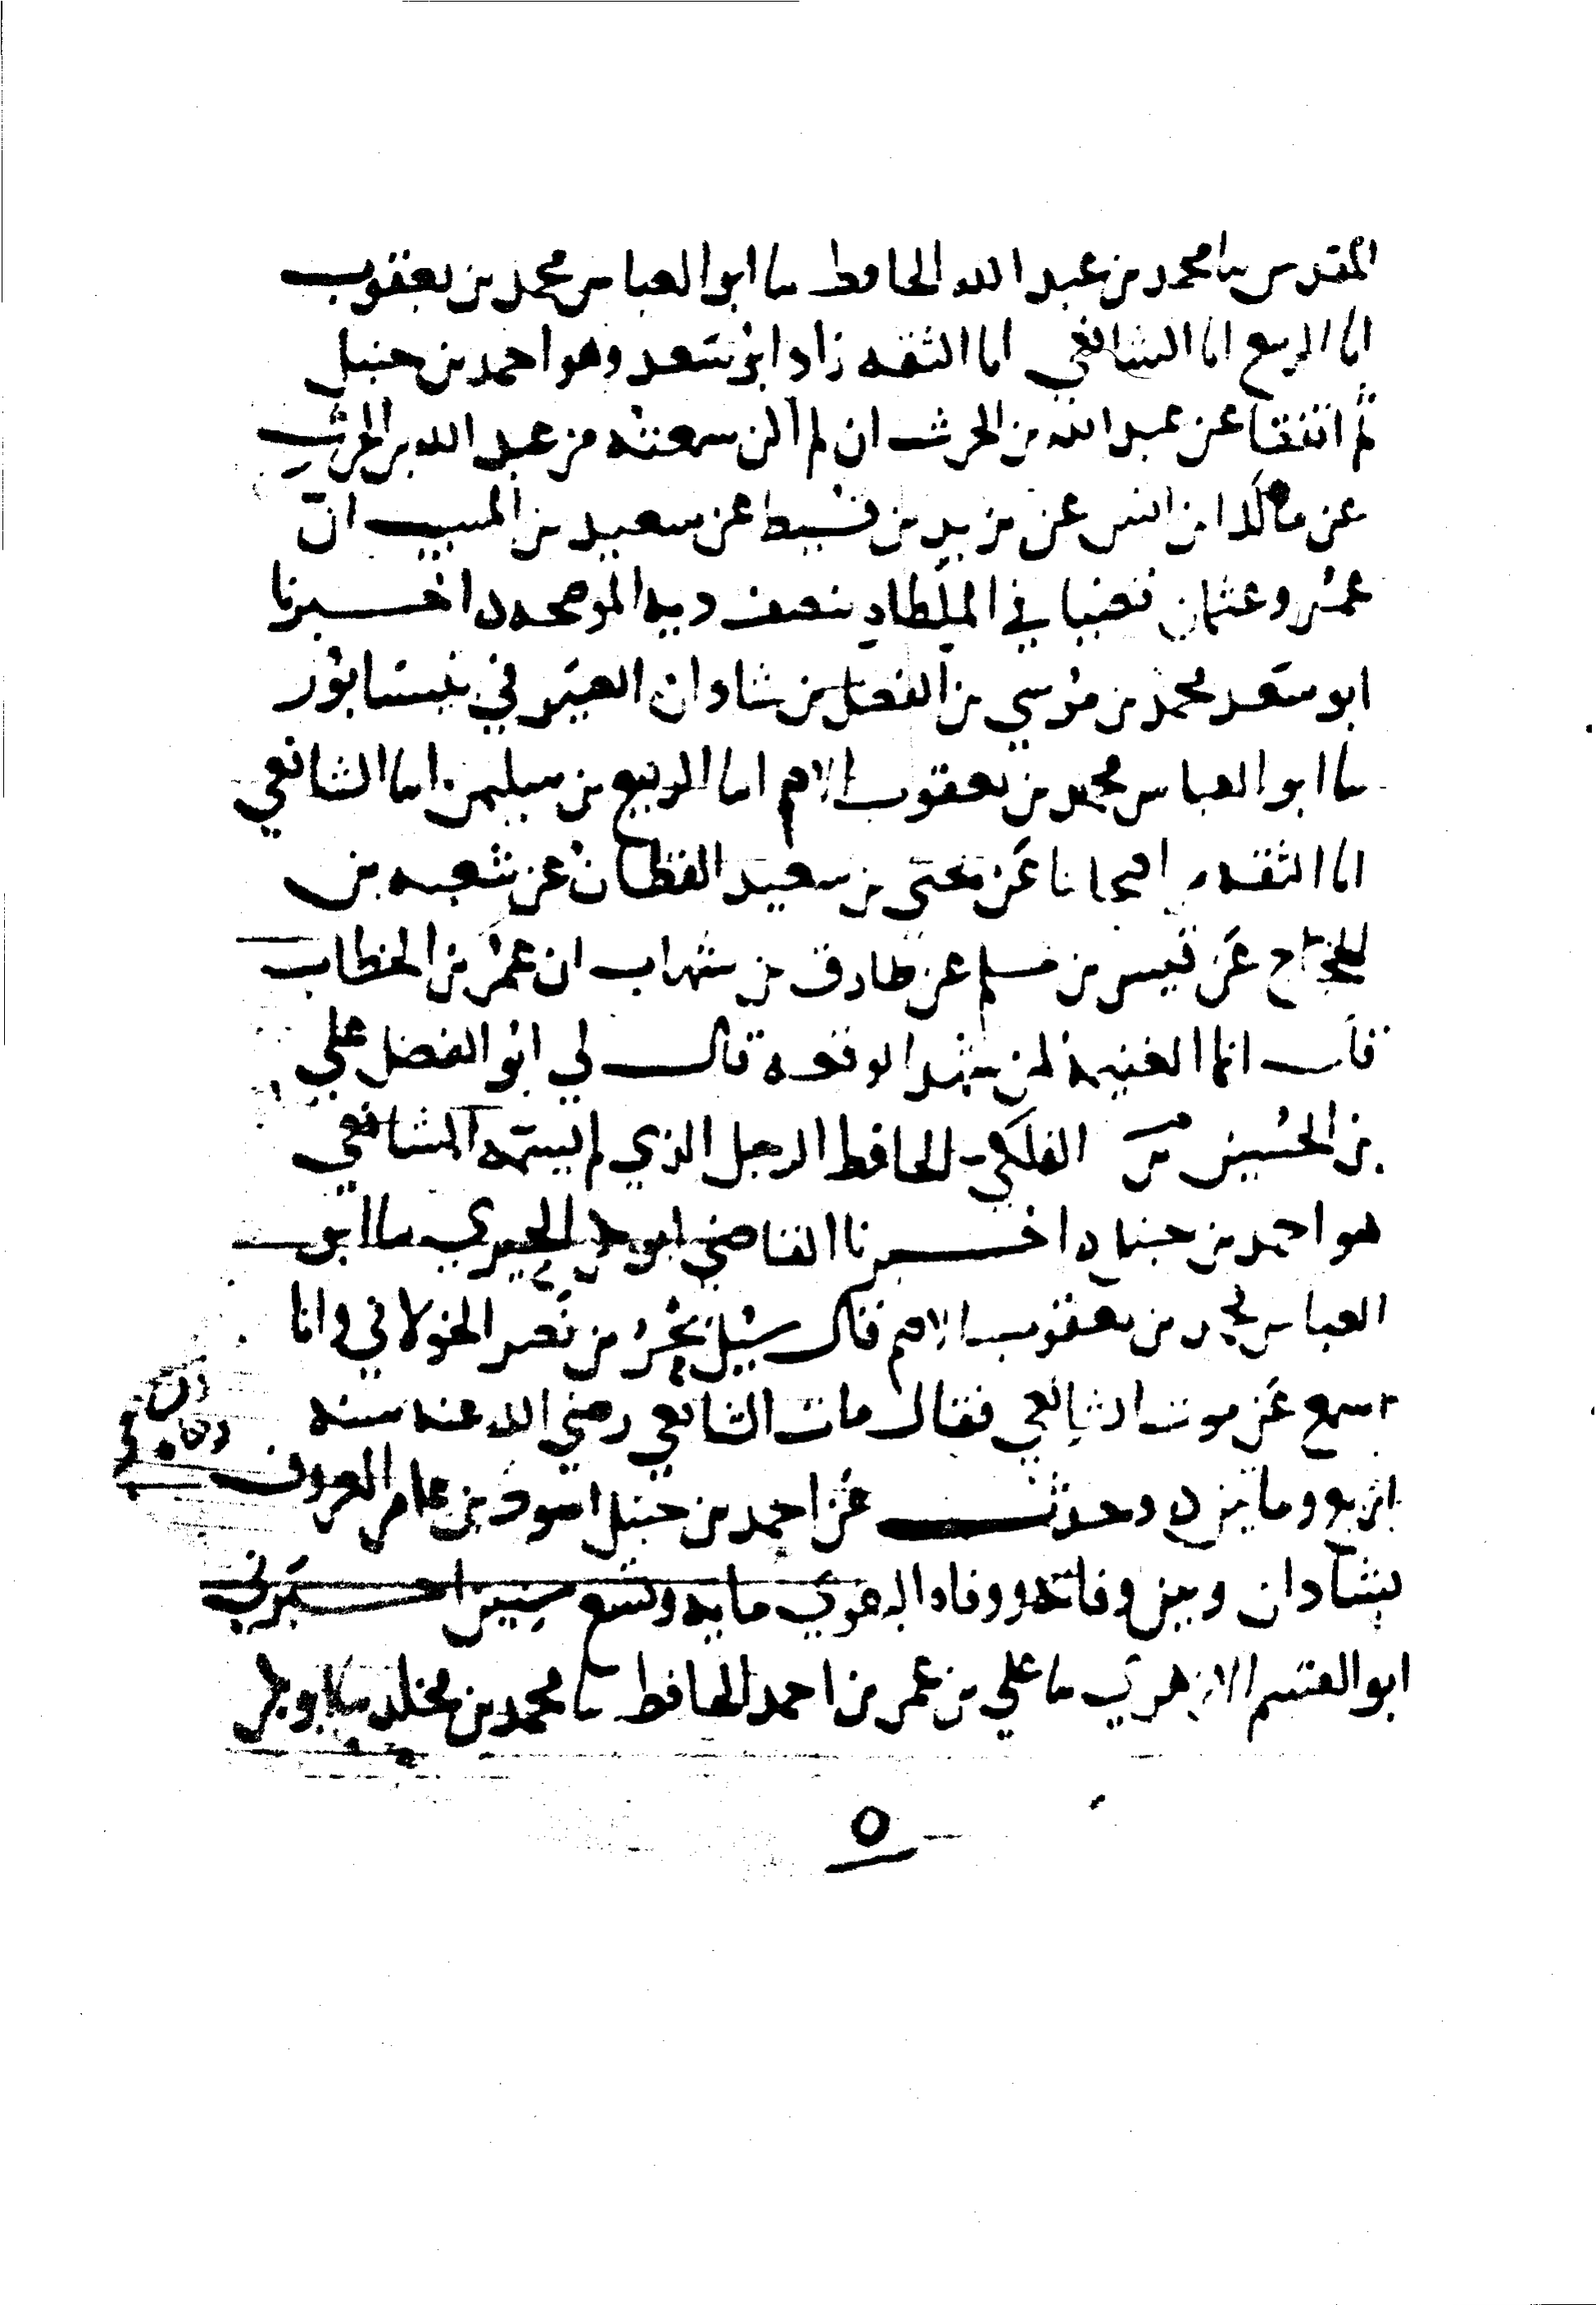 المقدسي نا محمد بن عبد الله الحافظ نا ابو العباس محمد بن يعقوب
انا الربيع انا الشافعي انا الثقه زاد ابو سعد وهو احمد بن حنبل
ثم اتفقا عن عبد الله بن الحرث ان لم اكن سمعته من عبد الله بن الحرث
عن مالك ابن انس عن يزيد بن قسيط عن سعيد بن المسيب ان
عمر وعثمان قضيا في الملطاه بنصف ديه الموضحه ه اخبرنا
ابو سعد محمد بن موسي بن الفضل بن شاذان الصيرفي بنيسابور
نا ابو العباس محمد بن يعقوب الاصم انا الربيع بن سليمن انا الشافعي
انا الثقه من اصحابنا عن يحيى بن سعيد القطان عن شعبه بن
الحجاج عن قيس بن مسلم عن طارق بن شهاب ان عمر بن الخطاب
قال انما الغنيمه لمن شهد الوقعه قال لي ابو الفضل علي
بن الحسين الفلكي الحافظ الرجل الذي لم يسمه الشافعي
هو احمد بن حنبل ه اخبرنا القاضي ابو بكر الحيري نا ابو
العباس محمد بن يعقوب الاصم قال سئل بحر بن نصر الخولاني وانا
اسمع عن موت الشافعي فقال مات الشافعي رضي الله عنه سنه
اربع ومايتين ه وحدث عن احمد بن حنبل اسود بن عامر المعروف
بشاذان وبين وفاته ووفاه البغوي مايه وتسع سنين اخبرني
ابو القسم الازهري نا علي بن عمر بن احمد الحافظ نا محمد بن مخلد نا ابو بكر
٥